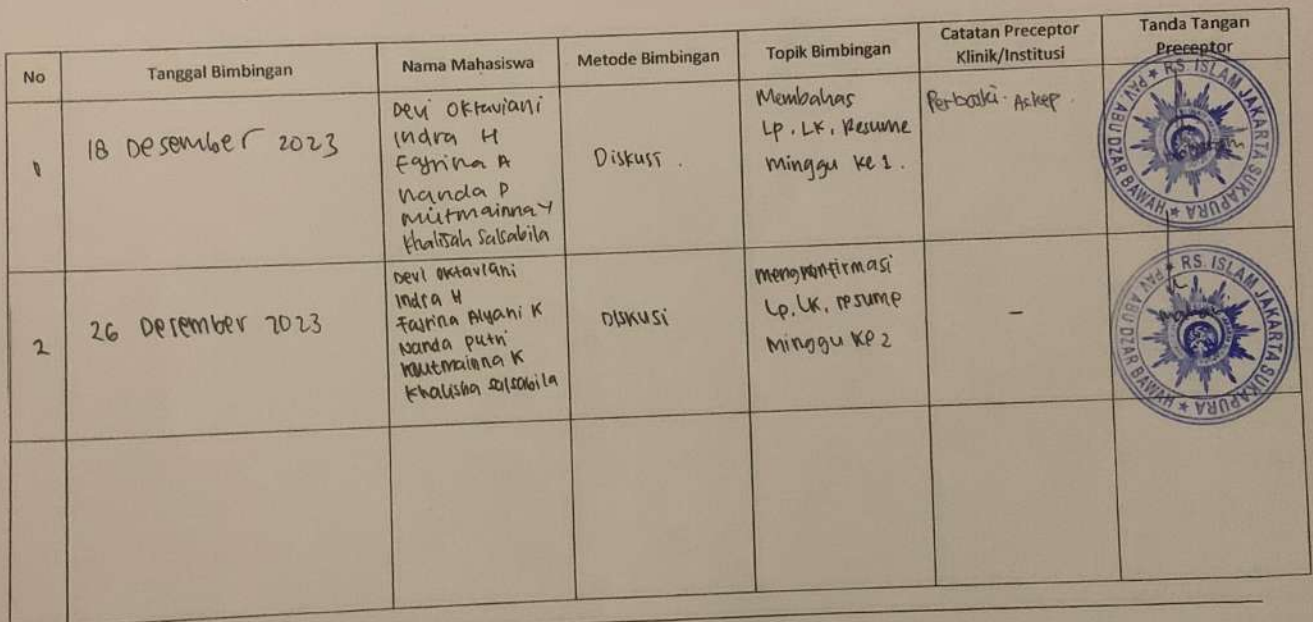 No
Tanggal Bimbingan
Nama Mahasiswa
Metode Bimbingan
Topik Bimbingan
Catatan Preceptor
Klinik/Institusi
Tanda Tangan
Preceptor
1
18 Desember 2023
Devi Oktaviani
Indra H
Fajrina A
Nanda P
Mutmainna Y
Khalisah Salsabila
Diskusi.
Membahas
Lp. LK. Resume
minggu ke 1.
Perbaiki Askep.
RS. ISLAM JAKARTA SUKAPURA
PAV ABU DZAR BAWAH
2
26 Desember 2023
Devi Oktaviani
Indra H
Fajrina Alyani K
Nanda Putri
Mutmainna K
Khalisha salsabila
Diskusi
mengkonfirmasi
Lp. LK, resume
Minggu Ke 2
-
RS. ISLAM JAKARTA SUKAPURA
PAV ABU DZAR BAWAH